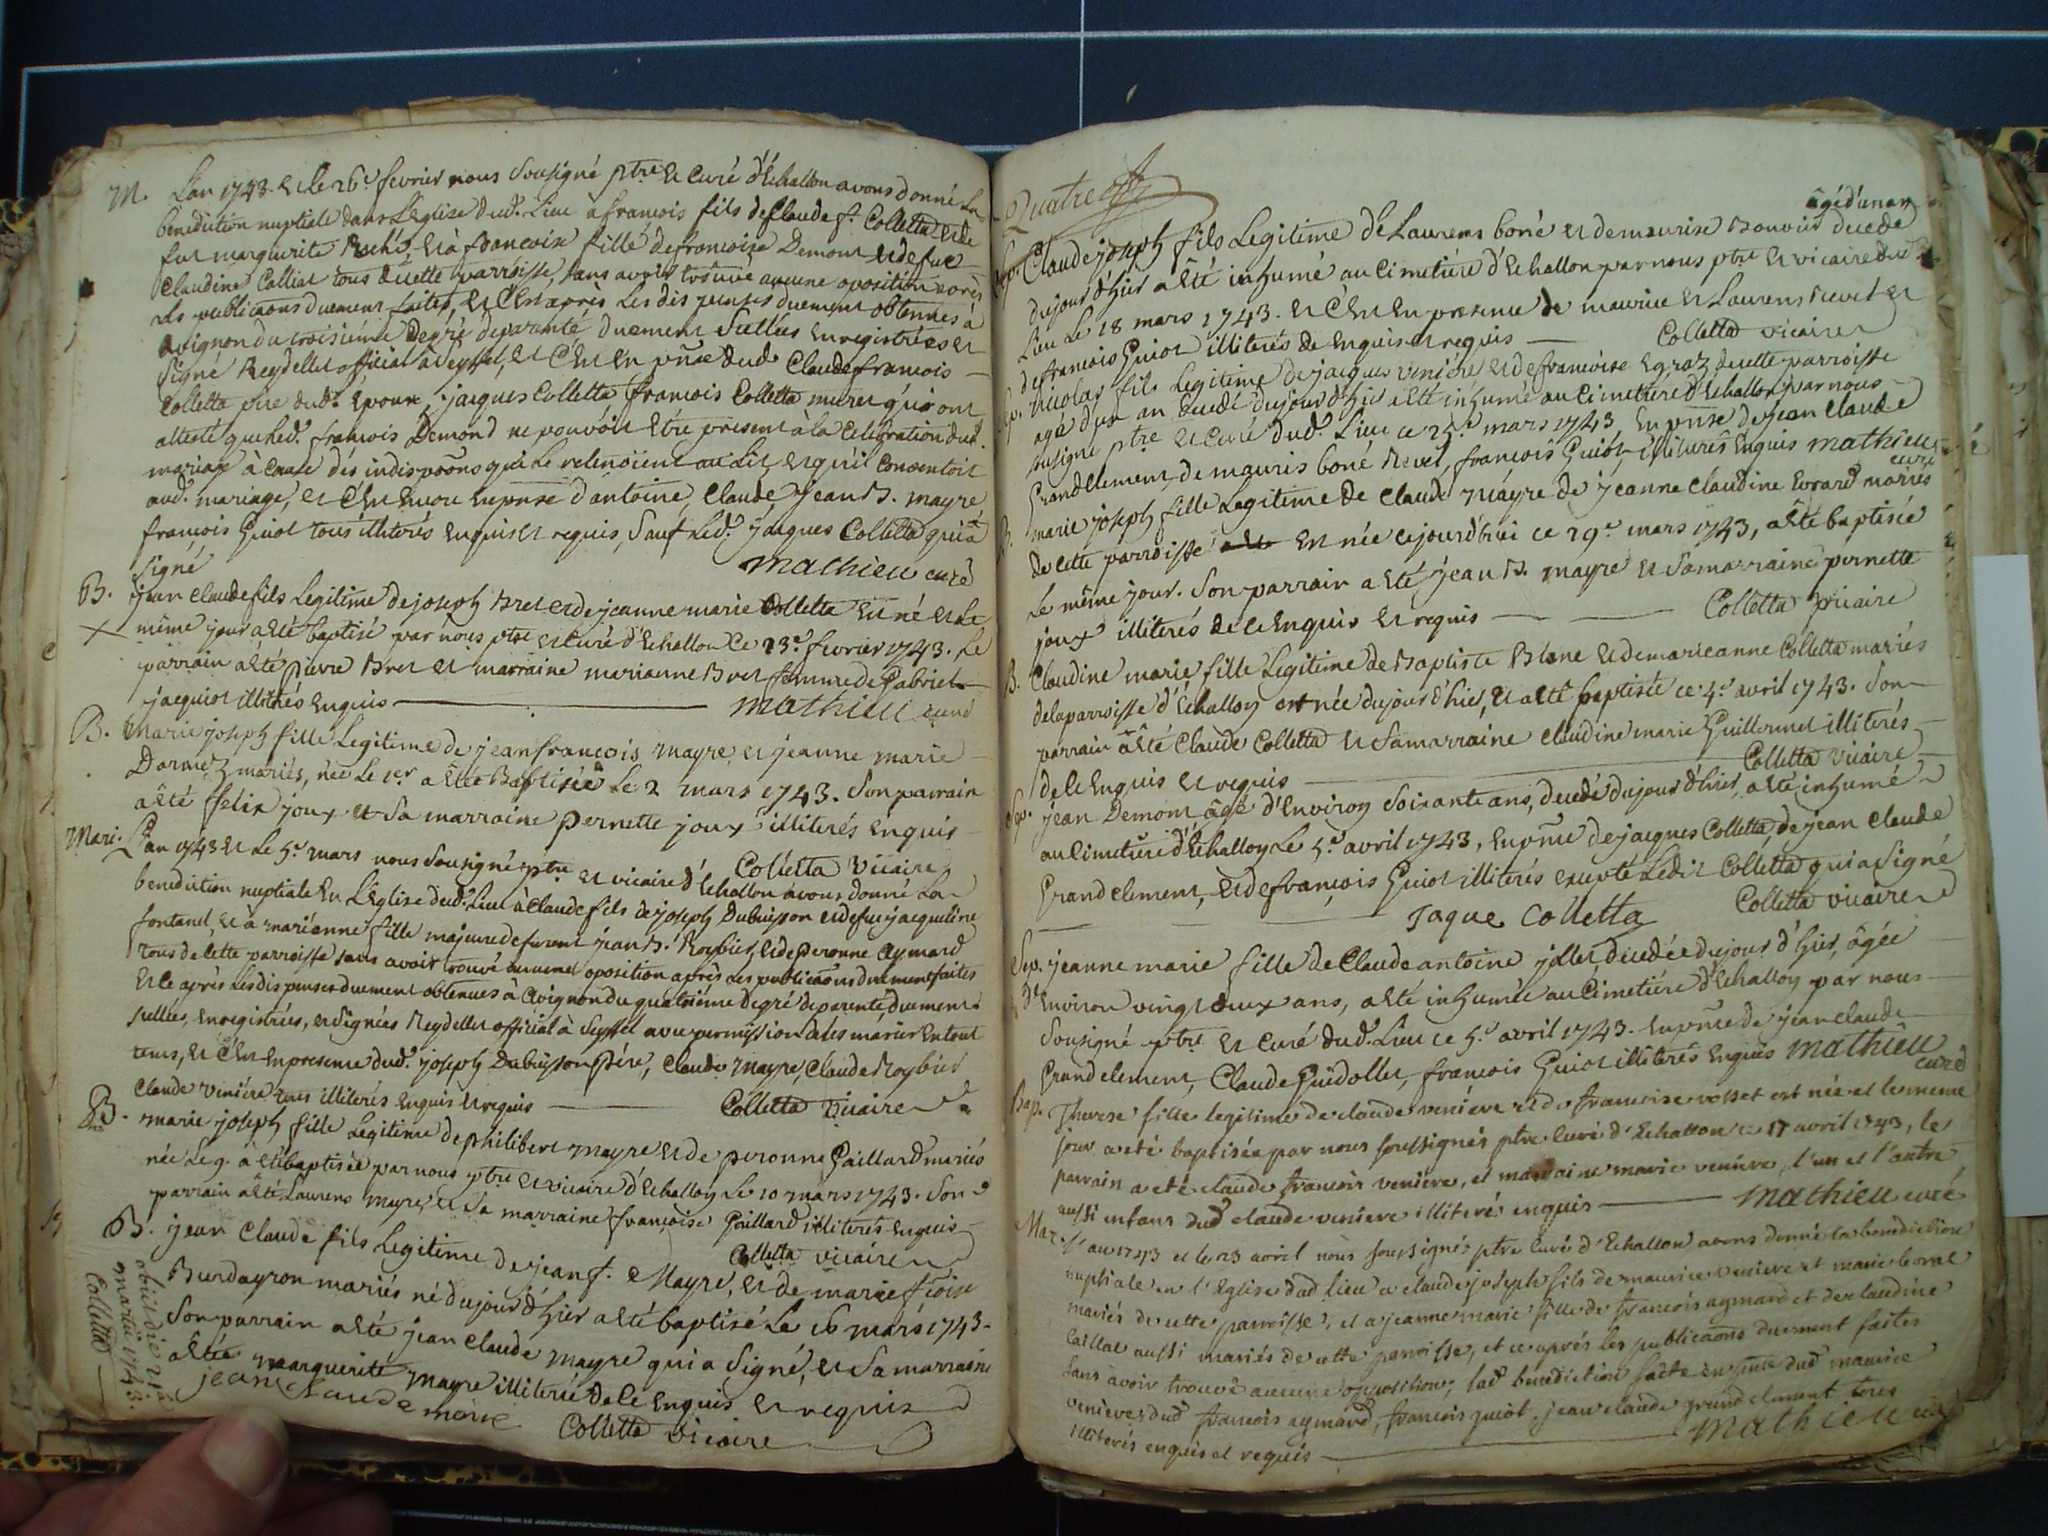 M. L'an 1743. et le 26e. fevrier nous sousigné ptre et curé d'Echallon avons donné La
benediction nuptiale dans L'eglise dud. Lieu a francois fils de Claude f. Colletta et de
fut marguerite et à francoise fille de francoise Demont et de fue
Claudine Calliat tous de cette parroisse, sans avoir trouvé aucune oposition après
Les publicaons duement faites, et C'est après Les dispenses duement obtenues à
avignon du troisième degré de parenté duement Sellées enregistrées et
signé Reydellet official à Seyssel, et C'est en pnce dud. Claude francois
Colletta pere dud. Epoux, jacques Colletta francois Colletta muret qui ont
attesté que led. francois Demond ne pouvoit être present à la Celebration dud.
mariage à Cause des indisposons qui Le retenoient au Lit et qu'il Consentoit
aud. mariage, et C'est encore en pnse d'antoine, Claude, jean B. mayre
francois Guiot tous illiterés enquis et requis, Sauf Led. jacques Colletta qui a
signé mathieu curé
B. jean Claude fils Legitime de joseph Bret et de jeanne marie Colletta est né et Le
même jour a été baptisé par nous ptre et curé d'Echallon Ce 23e. fevrier 1743. Le
parrain a été pierre Bret et marraine marianne Bret femme de Gabriel
jacquiot illiterés enquis mathieu curé
B. Marie joseph fille Legitime de jean francois mayre, et jeanne marie
Dormez mariés, née Le 1er a été Baptisée Le 2 mars 1743. Son parrain
a été felix joux et Sa marraine pernette joux illiterés enquis
Colletta Vicaire
Mari. L'an 1743 et Le 5e. mars nous sousigné ptre et vicaire d'Echallon avons donné La
benediction nuptiale en L'eglise dud. Lieu à Claude fils de joseph Dubuisson et de fue jacqueline
fontanel, et à marianne fille majeure de furent jean B. Roybier, et de peronne aymard
tous de cette parroisse sans avoir trouvé aucune oposition après Les publicaons duement faites
et Ce après Les dispenses duement obtenues à avignon du quatrième degré de parenté duement
sellées, enregistrées, et signées Reydellet official à Seyssel avec permission de les marier en tout
tems, et C'est en presence dud. joseph Dubuisson père, Claude mayre, Claude Roybier
Claude veniere tous illiterés enquis et requis Colletta Vicaire
B. marie joseph fille Legitime de philibert mayre et de peronne Gaillard mariés
née Le 9. a été baptisée par nous ptre et vicaire d'Echallon Le 10 mars 1743. Son
parrain a été Laurens mayre, et Sa marraine francoise Gaillard illiterés enquis
Colletta vicaire
B. jean Claude fils Legitime de jean f. Mayre, et de marie fcoise
Burdayron mariés né du jour d'hier a été baptisé Le 16 mars 1743.
Son parrain a été jean Claude mayre qui a signé, et Sa marraine
a été marguerite mayre illiterée de Ce enquis et requis
jean Claude meire
Colletta vicaire
obiit die 21a
martii 1743.
Colletta
Quatre
agé d'un an
Sep. Claude joseph fils Legitime de Laurens boné et de maurise Bouvier decedé
du jour d'hier a été inhumé au Cimetière d'Echallon par nous ptre et vicaire dud.
Lieu Le 18 mars 1743. et C'est en presence de maurice et Laurens Revet et
de francois Guiot illiterés de enquis et requis Colletta vicaire
Sep. Nicolas fils Legitime de jacques veniere et de francoise Egraz de cette parroisse
agé d'un an decedé du jour d'hier a été inhumé au Cimetière d'Echallon par nous
sousigné ptre et curé dud. Lieu ce mars 1743, en pnse de jean Claude
Grandclement, de mauris boné Revet, francois Guiot illiterés enquis mathieu
curé
B. marie joseph fille Legitime de Claude Mayre de jeanne Claudine Evrard mariés
de cette parroisse est née cejourd'hui ce 29e. mars 1743, a été baptisée
Le même jour. Son parrain a été jean B. mayre et Sa marraine pernette
joux illiterés de ce enquis et requis Colletta vicaire
B. Claudine marie fille Legitime de Baptiste Blanc et de marieanne Colletta mariés
de la parroisse d'Echallon est née du jour d'hier, et a été baptisée ce 4e. avril 1743. Son
parrain a été Claude Colletta et Sa marraine claudine marie Guillermet illiterés
de ce enquis et requis Colletta Vicaire
Sep. jean Demont âgé d'environ Soixante ans, decedé du jour d'hier, a été inhumé
au Cimetière d'Echallon Le 5e. avril 1743, en pnse de jacques Colletta, de jean Claude
Grandclement, et de francois Guiot illiterés excepté Ledit Colletta qui a signé
Jaque Colletta Colletta vicaire
Sep. jeanne marie fille de Claude antoine jollet, decedée du jour d'hier, âgée
d'Environ vingt deux ans, a été inhumée au Cimetière d'Echallon par nous
Sousigné ptre et curé dud. Lieu ce 5e. avril 1743. en pnse de jean claude
Grandclement, Claude Guidollet, francois Guiot illiterés enquis mathieu
curé
Bap. Therese fille legitime de claude veniere et de francoise rosset est née et le meme
jour a eté baptisée par nous soussignés ptre curé d'Echallon ce 17 avril 1743, le
parrain a eté claude francois veniere, et marraine marie veniere, l'un et l'autre
aussi enfans dud claude veniere illiterés enquis mathieu curé
Mar. l'an 1743 et le 23 avril nous soussignés ptre curé d'Echallon avons donné la benediction
nuptiale en l'Eglise dud lieu a claude joseph fils de maurice veniere et marie boral
mariés de cette parroisse, et a jeanne marie fille de francois aymard et de claudine
Caillat aussi mariés de cette parroisse, et ce après les publicaons duement faites
sans avoir trouvé aucune opposition; lad benediction faite en pnce dud maurice
veniere, dud francois aymard, francois guiot, jean claude grandclement tous
illiterés enquis et requis mathieu curé